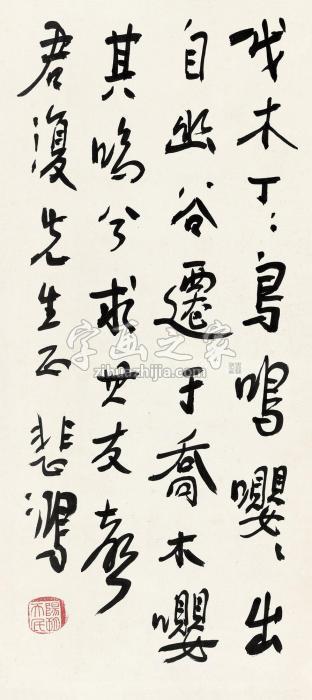 伐木丁〻鳥鳴嚶〻出
自幽谷遷于喬木嚶
其鳴兮求其友聲
君復先生正 悲鴻
陽朔天民
字画之家
zihuazhijia.com